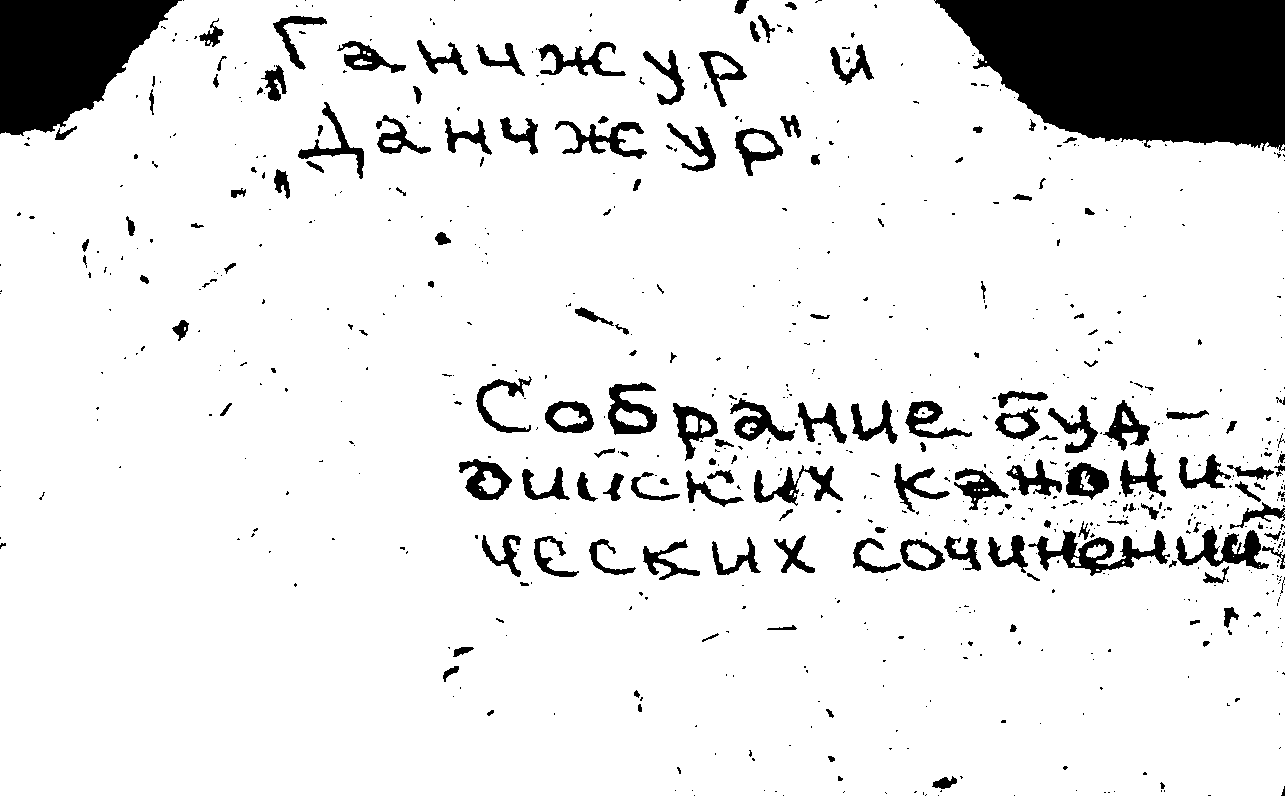 „Ганчжур" и
„Данчжур".
Собрание буд-
дийских канони-
ческих сочинений